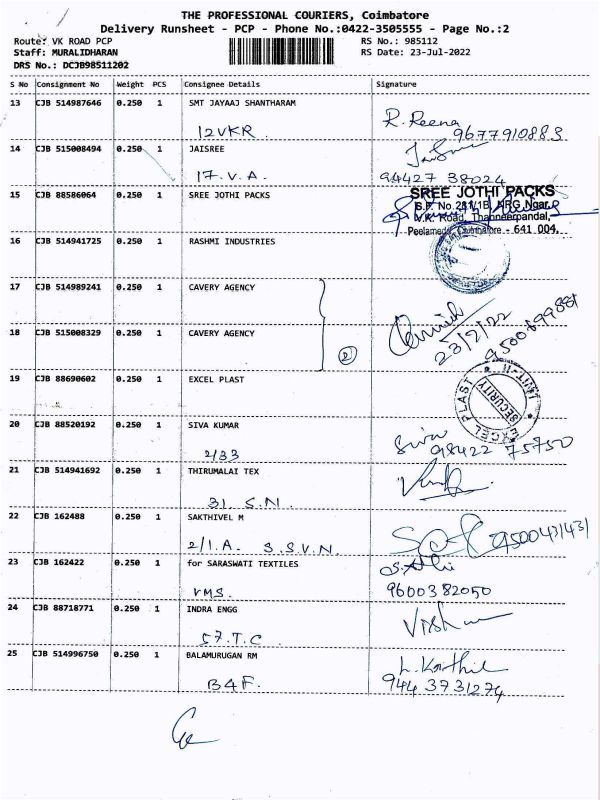 THE PROFESSIONAL COURIERS, Coimbatore
Delivery Runsheet - PCP - Phone No.:0422-3505555 - Page No.:2
Route: VK ROAD PCP
RS No.: 985112
Staff: MURALIDHARAN
RS Date: 23-Jul-2022
DRS No.: DCJB98511202
S No Consignment No Weight PCS Consignee Details Signature
13 CJB 514987646 0.250 1 SMT JAYAAJ SHANTHARAM
12VKR. R. Reena 9677910883
14 CJB 515008494 0.250 1 JAISREE
17. V. A. 94427 38024
15 CJB 88586064 0.250 1 SREE JOTHI PACKS
SREE JOTHI PACKS
S.F. No. 231/1B, NRG Ngar,
V.K. Road, Thanneerpandal,
Peelamedu, Coimbatore - 641 004.
16 CJB 514941725 0.250 1 RASHMI INDUSTRIES
17 CJB 514989241 0.250 1 CAVERY AGENCY
18 CJB 515008329 0.250 1 CAVERY AGENCY
2 23/7/22
19 CJB 88690602 0.250 1 EXCEL PLAST
EXCEL PLAST UNIT-II SECURITY
20 CJB 88520192 0.250 1 SIVA KUMAR
2/33 Siva 98422 75750
21 CJB 514941692 0.250 1 THIRUMALAI TEX
31 S.N.
22 CJB 162488 0.250 1 SAKTHIVEL M
2/1.A. S.S.V.N. 9500431431
23 CJB 162422 0.250 1 for SARASWATI TEXTILES
VMS. 9600382050
24 CJB 88718771 0.250 1 INDRA ENGG
57.T.C
25 CJB 514996750 0.250 1 BALAMURUGAN RM
B4F. L. Karthik
944 3731274